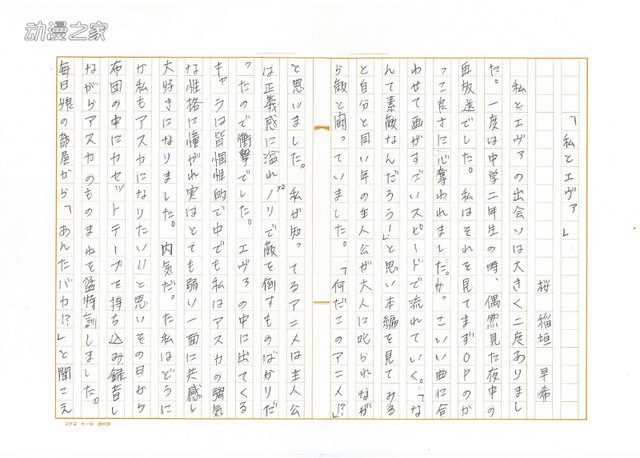 动漫之家
「私とエヴァ」
桜 稲垣 早希
私とエヴァの出会いは大きく二度ありまし
た。一度は中学二年生の時、偶然見た夜中の
再放送でした。私はそれを見てまずOPのか
っこ良さに心奪われました。か、こいい曲に合
わせて画がすごいスピードで流れていく。「な
んて素敵なんだろう!」と思い本編を見てみる
と自分と同い年の主人公が大人に叱られなが
ら敵と闘っていました。「何だこのアニメ!?」
と思いました。私が知ってるアニメは主人公
は正義感に溢れノリで敵を倒すものばかりだ
ったので衝撃でした。エヴァの中に出てくる
キャラは皆個性的で中でも私はアスカの強気
な性格に憧がれ実はとても弱い一面に共感し
大好きになりました。内気だった私はどうに
か私もアスカになりたい!!と思いその日から
布団の中にカセットテープを持ち込み録音し
ながらアスカのものまねを猛特訓しました。
毎日娘の部屋から「あんたバカ!?」と聞こえ
コクヨ